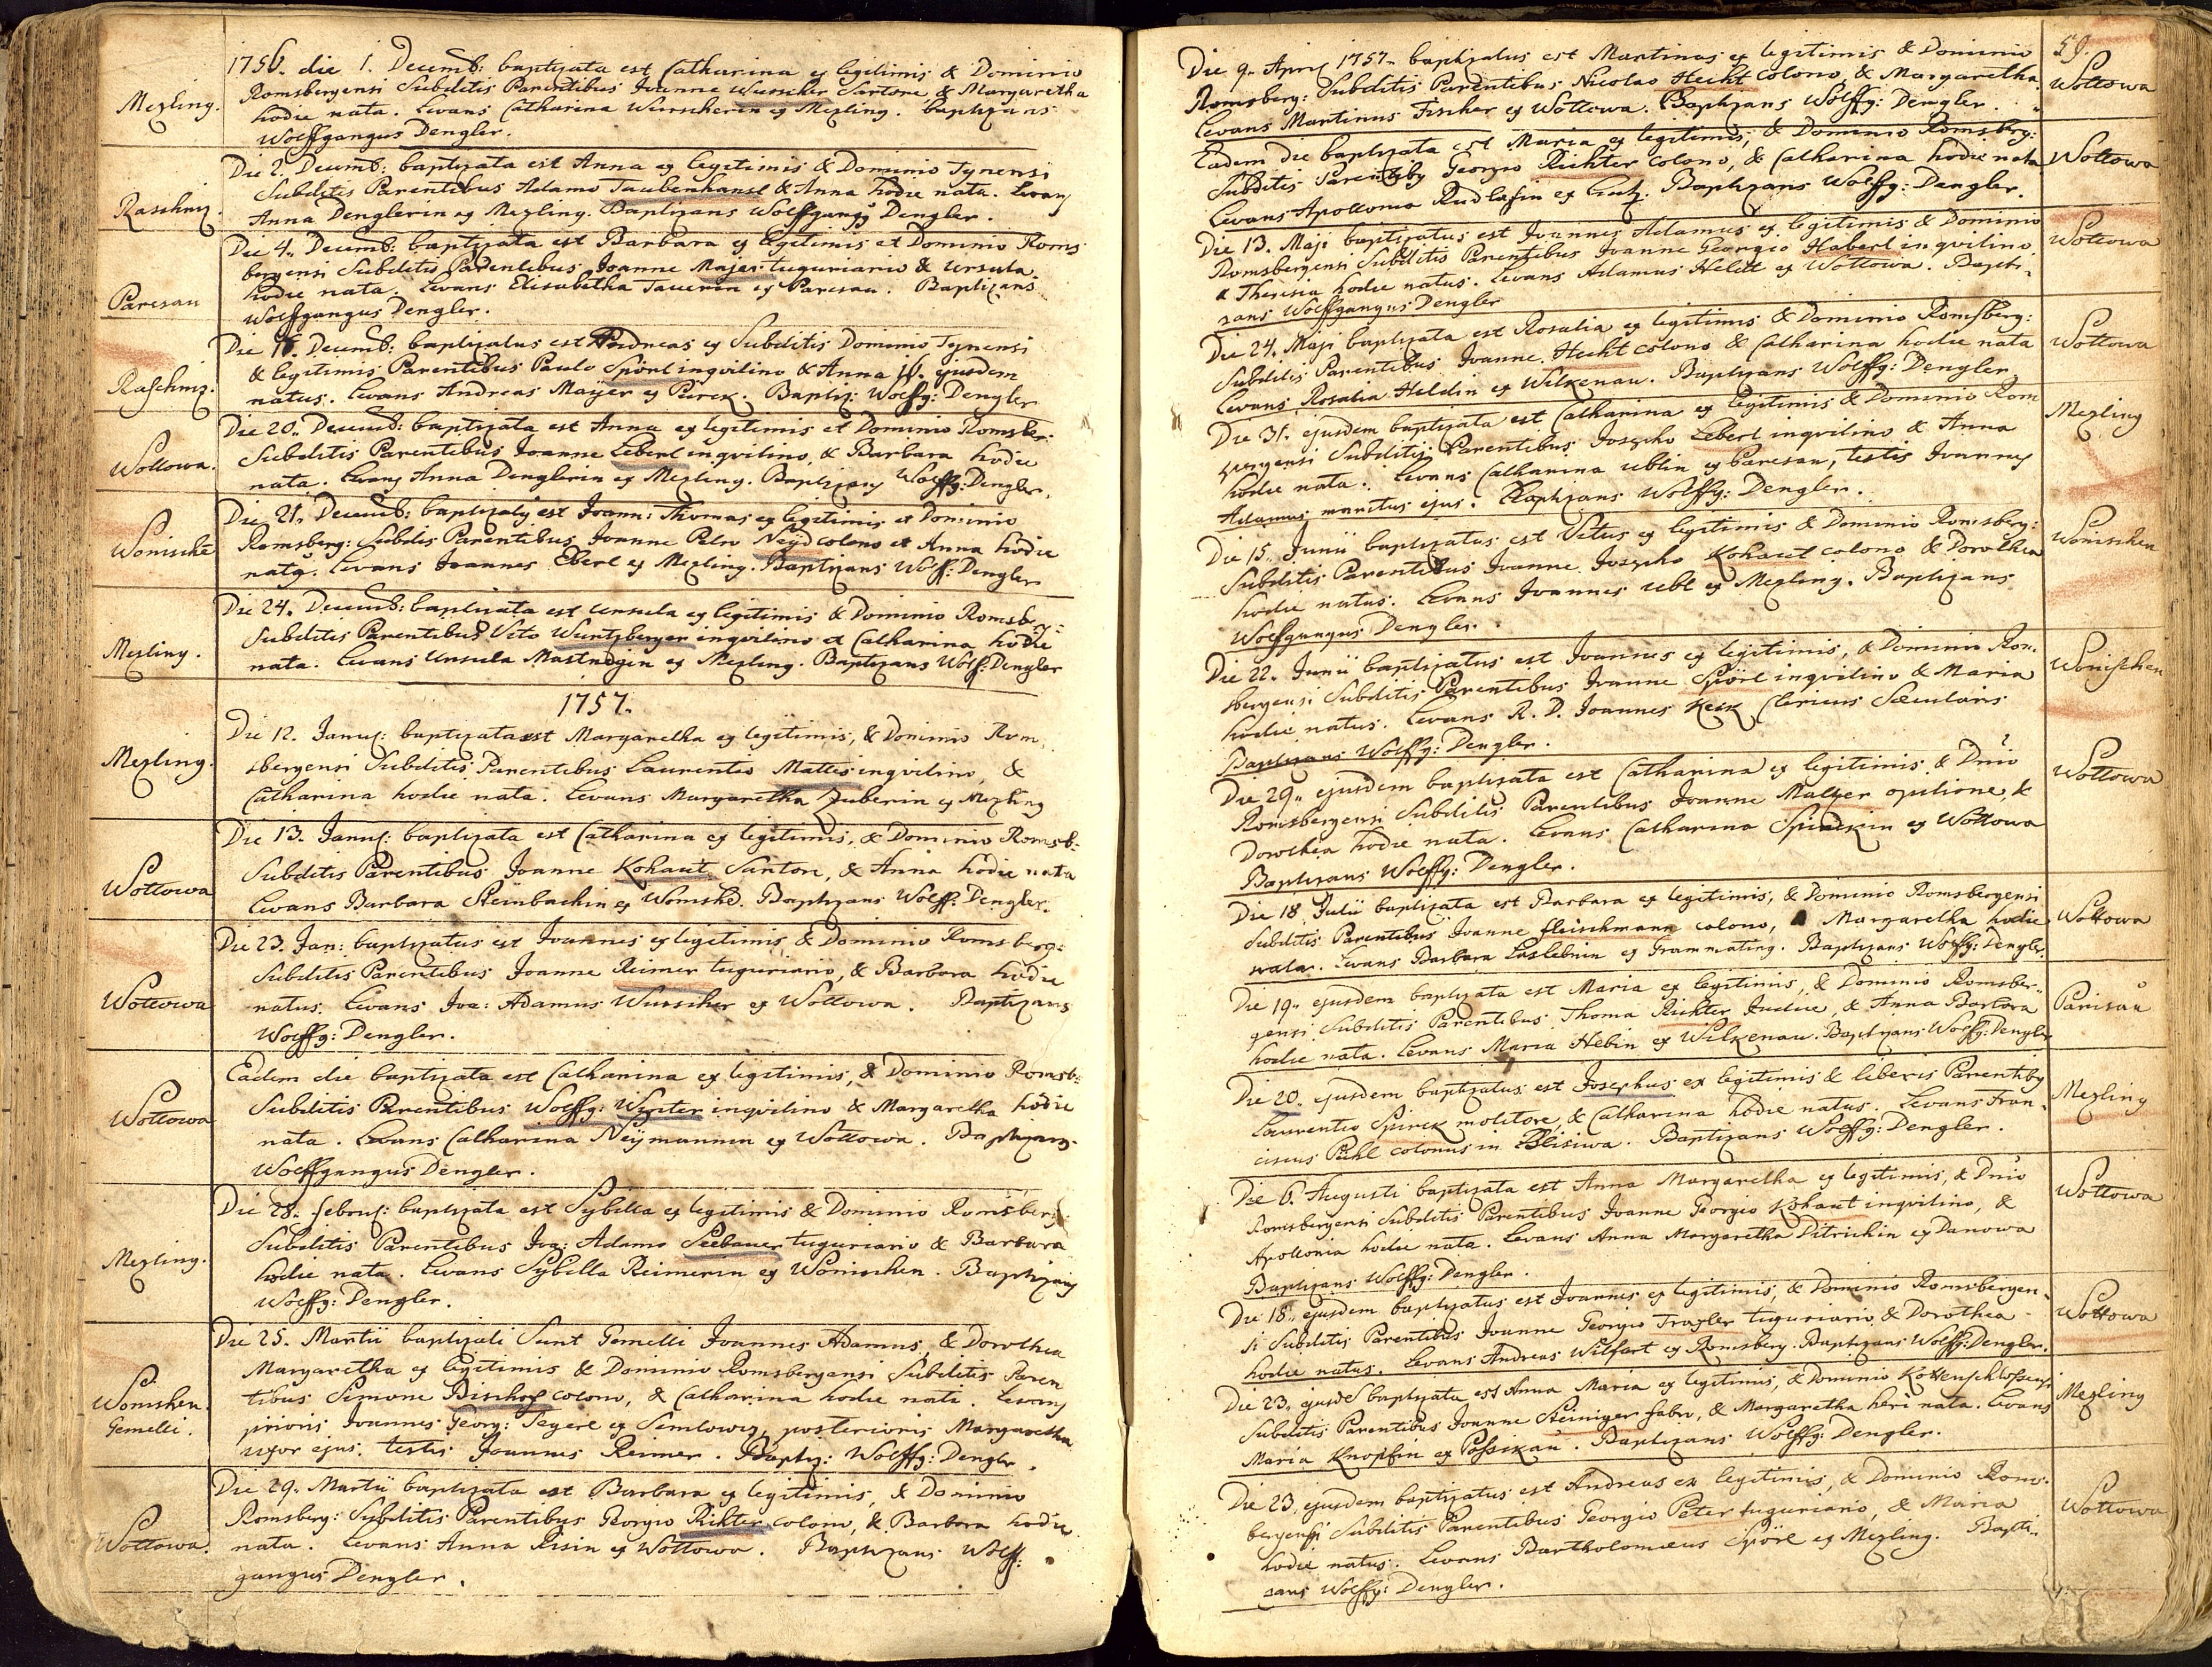 Mezling.
1756. die 1. Decemb: baptizata est Catharina ex legitimis & Dominio
Romsbergensi Subditis Parentibus Joanne Wurscher Sartore & Margaretha
hodie nata. Levans Catharina Wurscherin ex Mezling. Baptizans
Wolffgangus Dengler.
Raschniz.
Die 2. Decemb: baptizata est Anna ex legitimis & Dominio Tynensi
Subditis Parentibus Adamo Taubenhansl & Anna hodie nata. Levans
Anna Denglerin ex Mezling. Baptizans Wolffgangus Dengler.
Paresau
Die 4. Decemb: baptizata est Barbara ex legitimis et Dominio Roms
bergensi Subditis Parentibus Joanne Majer tuguriario & Ursula
hodie nata. Levans Elisabetha Tauerin ex Paresau. Baptizans
Wolffgangus Dengler.
Raschniz.
Die 16. Decemb: baptizatus est Andreas ex Subditis Dominio Tynensi
& legitimis Parentibus Paulo Spörl inqvilino & Anna 16. ejusdem
natus. Levans Andreas Mayer ex Pirck. Baptiz: Wolffg: Dengler
Wottowa.
Die 20. Decemb: baptizata est Anna ex legitimis et Dominio Romsber:
Subditis Parentibus Joanne Leberl inqvilino, & Barbara hodie
nata. Levans Anna Denglerin ex Mezling. Baptizans Wolffg: Dengler.
Wonische
Die 21. Decemb: baptizatus est Joann: Thomas ex legitimis et Dominio
Romsberg: Subdis Parentibus Joanne Petro Neÿd colono et Anna hodie
natus. Levans Joannes Eberl ex Mezling. Baptizans Wolff: Dengler
Mezling.
Die 24. Decemb: baptizata est Ursula ex legitimis & Dominio Romsberg:
Subditis Parentibus Vito Wuntzberger inqvilino et Catharina hodie
nata. Levans Ursula Mastnagin ex Mezling. Baptizans Wolff: Dengler
1757.
Mezling.
Die 12. Januɟ: baptizata est Margaretha ex legitimis, & Dominio Rom
sbergensi Subditis Parentibus Laurentio Mattes inqvilino, &
Catharina hodie nata. Levans Margaretha Zuberin ex Mezling
Wottowa
Die 13. Januɟ: baptizata est Catharina ex legitimis, & Dominio Romsb:
Subditis Parentibus Joanne Kohaut Sartore, & Anna hodie nata
Levans Barbara Steinbachin ex Womshe. Baptizans Wolff: Dengler.
Wottowa
Die 23. Jan: baptizatus est Joannes ex legitimis & Dominio Romsberg:
Subditis Parentibus Joanne Reimer tuguriario, & Barbara hodie
natus. Levans Joa: Adamus Wurscher ex Wottowa. Baptizans
Wolffg: Dengler.
Wottowa
Eadem die baptizata est Catharina ex legitimis, & Dominio Romsb:
Subditis Parentibus Wolffg: Wynter inqvilino & Margaretha hodie
nata. Levans Catharina Neÿmannin ex Wottowa. Baptizans
Wolffgangus Dengler.
Mezling.
Die 28. februɟ: baptizata est Sybilla ex legitimis & Dominio Romsberg:
Subditis Parentibus Joa: Adamo Seebauer tuguriario & Barbara
hodie nata. Levans Sybilla Reimerin ex Wonischen. Baptizans
Wolffg: Dengler.
Womshen.
Gemelli.
Die 25. Martii baptizati Sunt Gemelli Joannes Adamus, & Dorothea
Margaretha ex legitimis & Dominio Romsbergensi Subditis Paren
tibus Simone Bischof colono, & Catharina hodie nati. Levans
prioris Joannes Georg: Segerl ex Semlowiz, posterioris Margaretha
uxor ejus. testis Joannes Reimer. Baptiz: Wolffg: Dengler.
Wottowa.
Die 29. Martii baptizata est Barbara ex legitimis, & Dominio
Romsberg: Subditis Parentibus Georgio Richter colono, & Barbara hodie
nata. Levans Anna Risin ex Wottowa. Baptizans Wolff:
gangus Dengler.
59.
Wottowa
Die 9. April 1757. baptizatus est Martinus ex legitimis & Dominio
Romsberg: Subditis Parentibus Nicolao Hecht colono, & Margaretha
Levans Martinus Fischer ex Wottowa. Baptizans Wolffg: Dengler.
Wottowa
Eadem die baptizata est Maria ex legitimis, & Dominio Romsberg:
Subditis Parentiby Georgio Richter colono, & Catharina hodie nata
Levans Apollonia Rudlasin ex Gutz. Baptizans Wolffg: Dengler.
Wottowa
Die 13. Maji baptizatus est Joannes Adamus ex legitimis & Dominio
Romsbergensi Subditis Parentibus Joanne Georgio Haberl inqvilino
& Theresia hodie natus. Levans Adamus Heldt ex Wottowa. Bapti-
zans Wolffgangus Dengler
Wottowa
Die 24. Maji baptizata est Rosalia ex legitimis & Dominio Romsberg:
Subditis Parentibus Joanne Hecht colono & Catharina hodie nata
Levans Rosalia Heldin ex Wilkenau. Baptizans Wolffg: Dengler
Mezling
Die 31. ejusdem baptizata est Catharina ex legitimis & Dominio Rom
spergensi Subditis Parentibus Josepho Leberl inqvilino & Anna
hodie nata. Levans Catharina Ublin ex Paresau, testis Joannes
Adamus maritus ejus. Baptizans Wolffg: Dengler.
Wonischen
Die 15. Junii baptizatus est Vitus ex legitimis & Dominio Romsberg:
Subditis Parentibus Joanne Josepho Kohaut colono & Dorothea
hodie natus. Levans Joannes Ubl ex Mezling. Baptizans
Wolffgangus Dengler.
Wonischen
Die 22. Junii baptizatus est Joannes ex legitimis, & Dominio Rom.
sbergensi Subditis Parentibus Joanne Spörl inqvilino & Maria
hodie natus. Levans R. D. Joannes Keck Clericus Secularis
Baptizans Wolffg: Dengler.
Wottowa
Die 29. ejusdem baptizata est Catharina ex legitimis & Dnio
Romsbergensi Subditis Parentibus Joanne Maltzer opilione, &
Dorothea hodie nata. Levans Catharina Spirckin ex Wottowa
Baptizans Wolffg: Dengler.
Wottowa
Die 18 Julii baptizata est Barbara ex legitimis, & Dominio Romsbergensi
Subditis Parentibus Joanne fleischmann colono, Margaretha hodie
nata. Levans Barbara Loslebnin ex Grammating. Baptizans Wolffg: Dengler.
Parisau
Die 19. ejusdem baptizata est Maria ex legitimis, & Dominio Romsber-
gensi Subditis Parentibus Thoma Richter Judice, & Anna Barbara
hodie nata. Levans Maria Hebin ex Wilkenau. Baptizans Wolffg: Dengler
Mezling
Die 20. ejusdem baptizatus est Josephus ex legitimis & liberis Parentiby
Laurentio Spirck molitore, & Catharina hodie natus. Levans Fran-
ciscus Pühl colonus in Blisiwa. Baptizans Wolffg: Dengler.
Wottowa
Die 6. Augusti baptizata est Anna Margaretha ex legitimis, & Dnio
Romsbergensi Subditis Parentibus Joanne Georgio Kohaut inqvilino, &
Apollonia hodie nata. Levans Anna Margaretha Ditrichin ex Danowa
Baptizans Wolffg: Dengler.
Wottowa
Die 18. ejusdem baptizatus est Joannes ex legitimis, & Dominio Romsbergen-
si Subditis Parentibus Joanne Georgio Traxler tuguriario & Dorothea
hodie natus. Levans Andreas Wilfert ex Romsberg. Baptizans Wolffg: Dengler.
Mezling
Die 23. ejusde baptizata est Anna Maria ex legitimis, & Dominio Kottenschlossensi
Subditis Parentibus Joanne Steiniger fabro, & Margaretha heri nata. Levans
Maria Knopfin ex Possikau. Baptizans Wolffg: Dengler.
Wottowa
Die 23. ejusdem baptizatus est Andreas ex legitimis, & Dominio Roms-
bergensi Subditis Parentibus Georgio Peter tuguriario, & Maria
hodie natus. Levans Bartholomæus Spörl ex Mezling. Bapti-
zans Wolffg: Dengler.